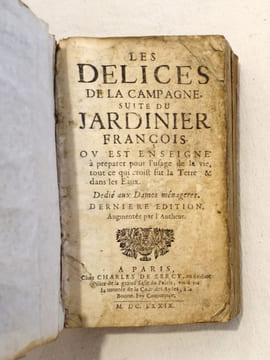 LES
DELICES
DE LA CAMPAGNE.
SUITE DU
JARDINIER
FRANÇOIS.
OV EST ENSEIGNÉ
à preparer pour l'usage de la vie,
tout ce qui croist sur la Terre &
dans les Eaux.
Dedié aux Dames ménageres.
DERNIERE EDITION.
Augmentée par l'Autheur.
A PARIS,
Chez CHARLES DE SERCY, au
de la grand' Salle du Palais,
la montée de la Cour des Aydes, à la
Bonne-Foy Couronnée,
M. DC. LXXIX.